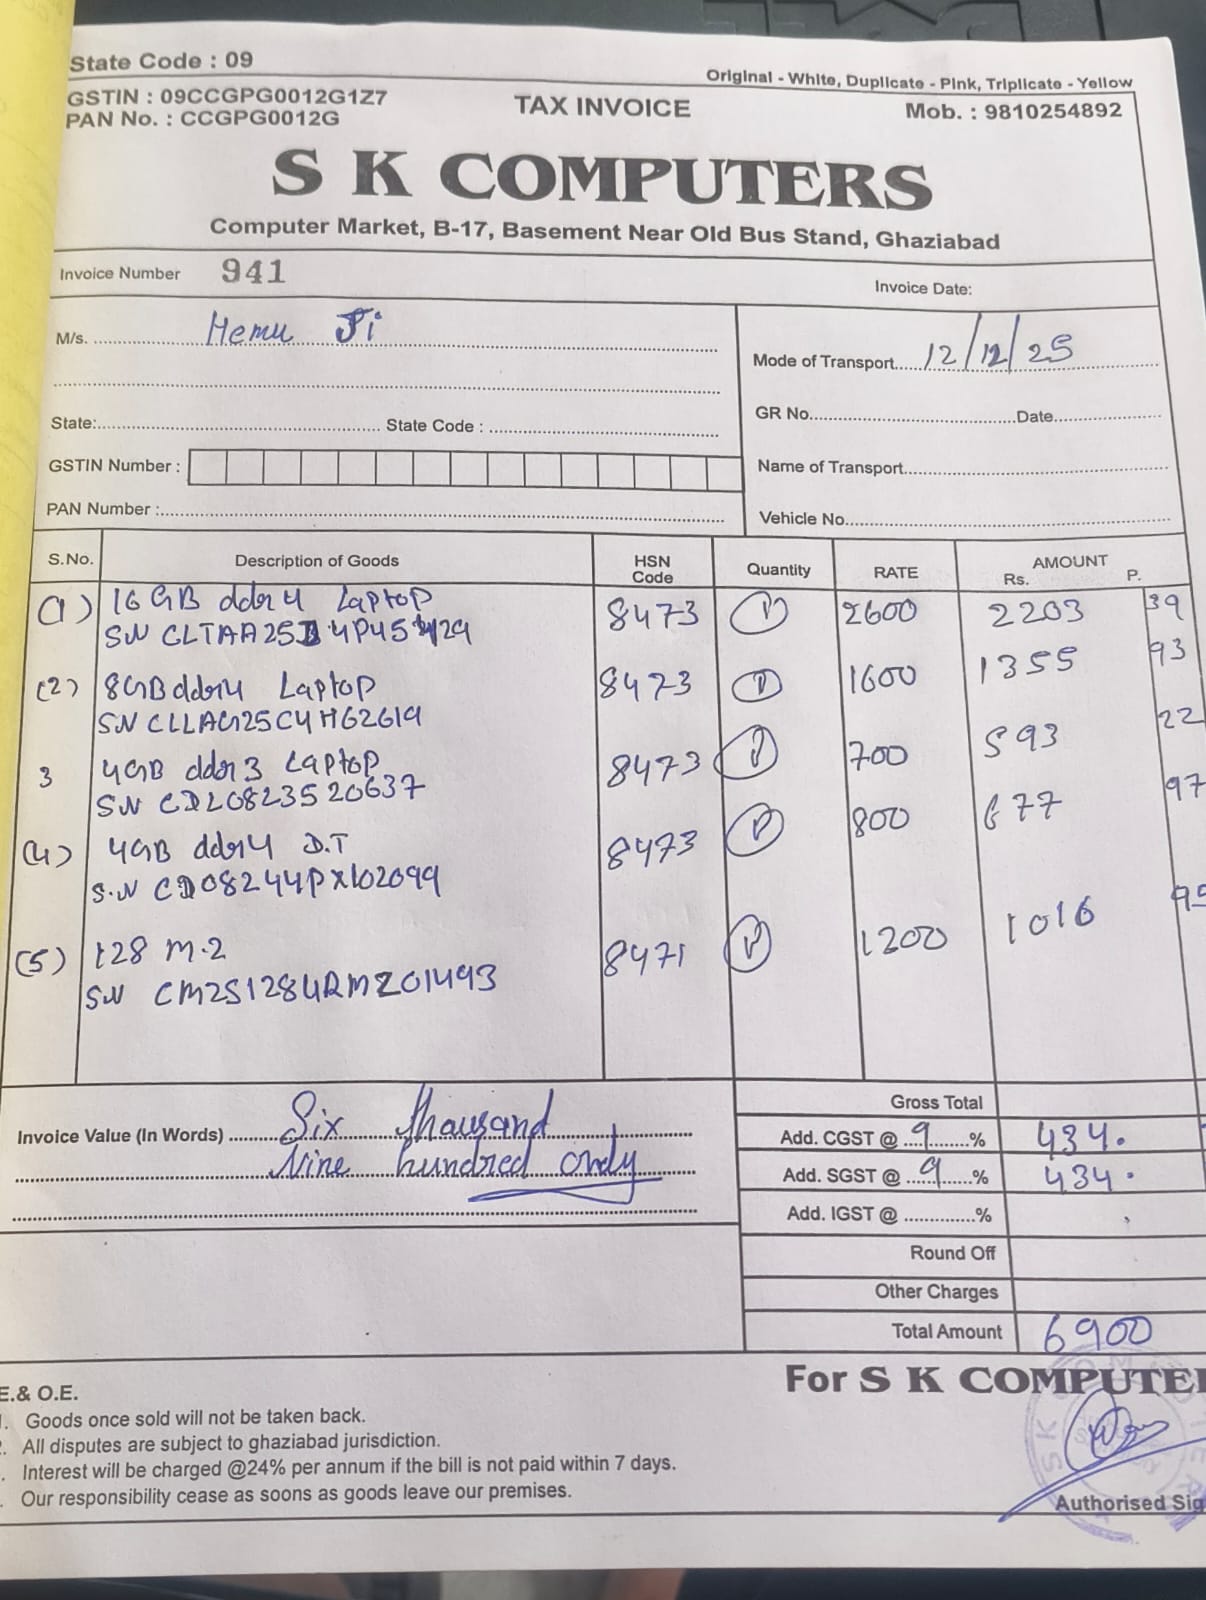 State Code : 09
Original - White, Duplicate - Pink, Triplicate - Yellow
GSTIN : 09CCGPG0012G1Z7
TAX INVOICE
Mob. : 9810254892
PAN No. : CCGPG0012G
S K COMPUTERS
Computer Market, B-17, Basement Near Old Bus Stand, Ghaziabad
Invoice Number 941
Invoice Date:
M/s. Hemu Ji
Mode of Transport 12/12/25
GR No. Date
State: State Code :
GSTIN Number :
Name of Transport
PAN Number :
Vehicle No.
S.No. Description of Goods HSN Code Quantity RATE AMOUNT Rs. P.
(1) 16GB ddr4 Laptop 8473 1 2600 2203 39
SN
(2) 8GB ddr4 Laptop 8473 1 1600 1355 93
SN CLLAG25C4HG2619
3 4GB ddr3 Laptop 8473 1 700 593 22
SN CDL0823520637
(4) 4GB ddr4 D.T 8473 1 800 677 97
S.N
(5) 128 M.2 8471 1 1200 1016 95
SN
Gross Total
Invoice Value (In Words) Six thousand
Nine hundred only
Add. CGST @ 9 % 434.
Add. SGST @ 9 % 434.
Add. IGST @ %
Round Off
Other Charges
Total Amount 6900
For S K COMPUTE
E.& O.E.
Goods once sold will not be taken back.
All disputes are subject to ghaziabad jurisdiction.
Interest will be charged @24% per annum if the bill is not paid within 7 days.
Our responsibility cease as soons as goods leave our premises.
Authorised Sig